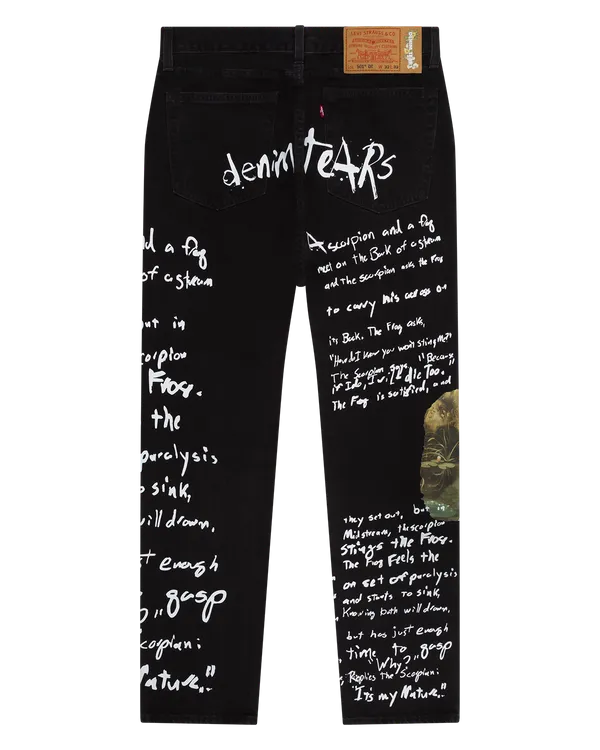 LEVI STRAUSS & CO.
denim teARs
nd a frog
of a stream
but in
scorpion
Frog.
the
paralysis
o sink,
will drown,
st enough
gasp
Scorpian:
Nature."
A scorpion and a frog
meet on the Bank of a stream
and the scorpion asks the Frog
to carry him across on
its Back. The Frog asks,
"How do I know you won't sting Me?"
The Scorpion says, "Because
if I do, I will Die Too."
The Frog is satisfied, and
they set out, but in
Midstream, the scorpion
Stings the Frog.
The Frog Feels the
on set of paralysis
and starts to sink,
Knowing both will drown,
but has just enough
time to gasp
"Why?"
Replies the Scorpian:
"It's my Nature."